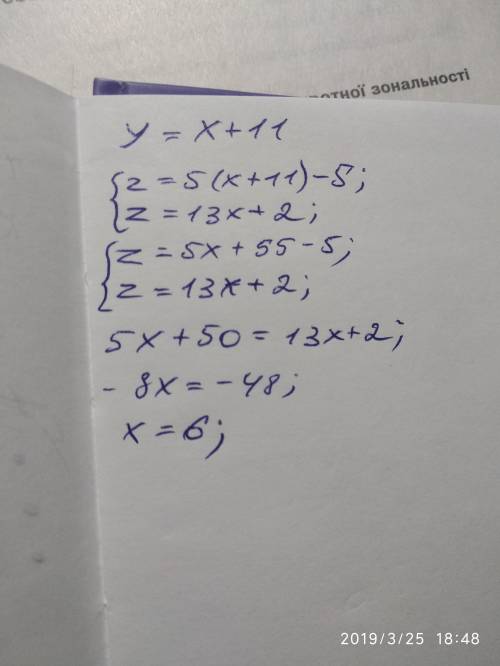 ротної зональності
y = x + 11
{ z = 5(x + 11) - 5;
z = 13x + 2;
{ z = 5x + 55 - 5;
z = 13x + 2;
5x + 50 = 13x + 2;
- 8x = - 48;
x = 6;
2019/3/25 18:48